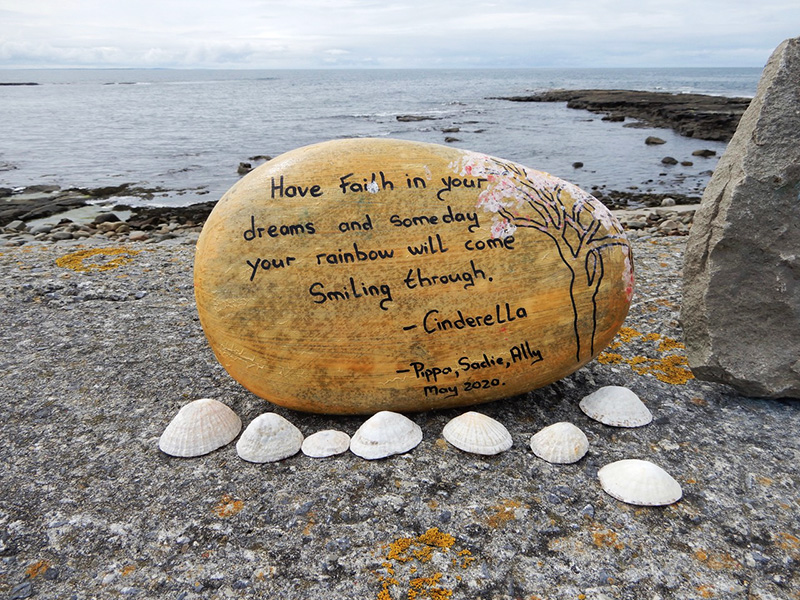 Have Faith in your
dreams and someday
your rainbow will come
Smiling through.
- Cinderella
- Pippa, Sadie, Ally
May 2020.